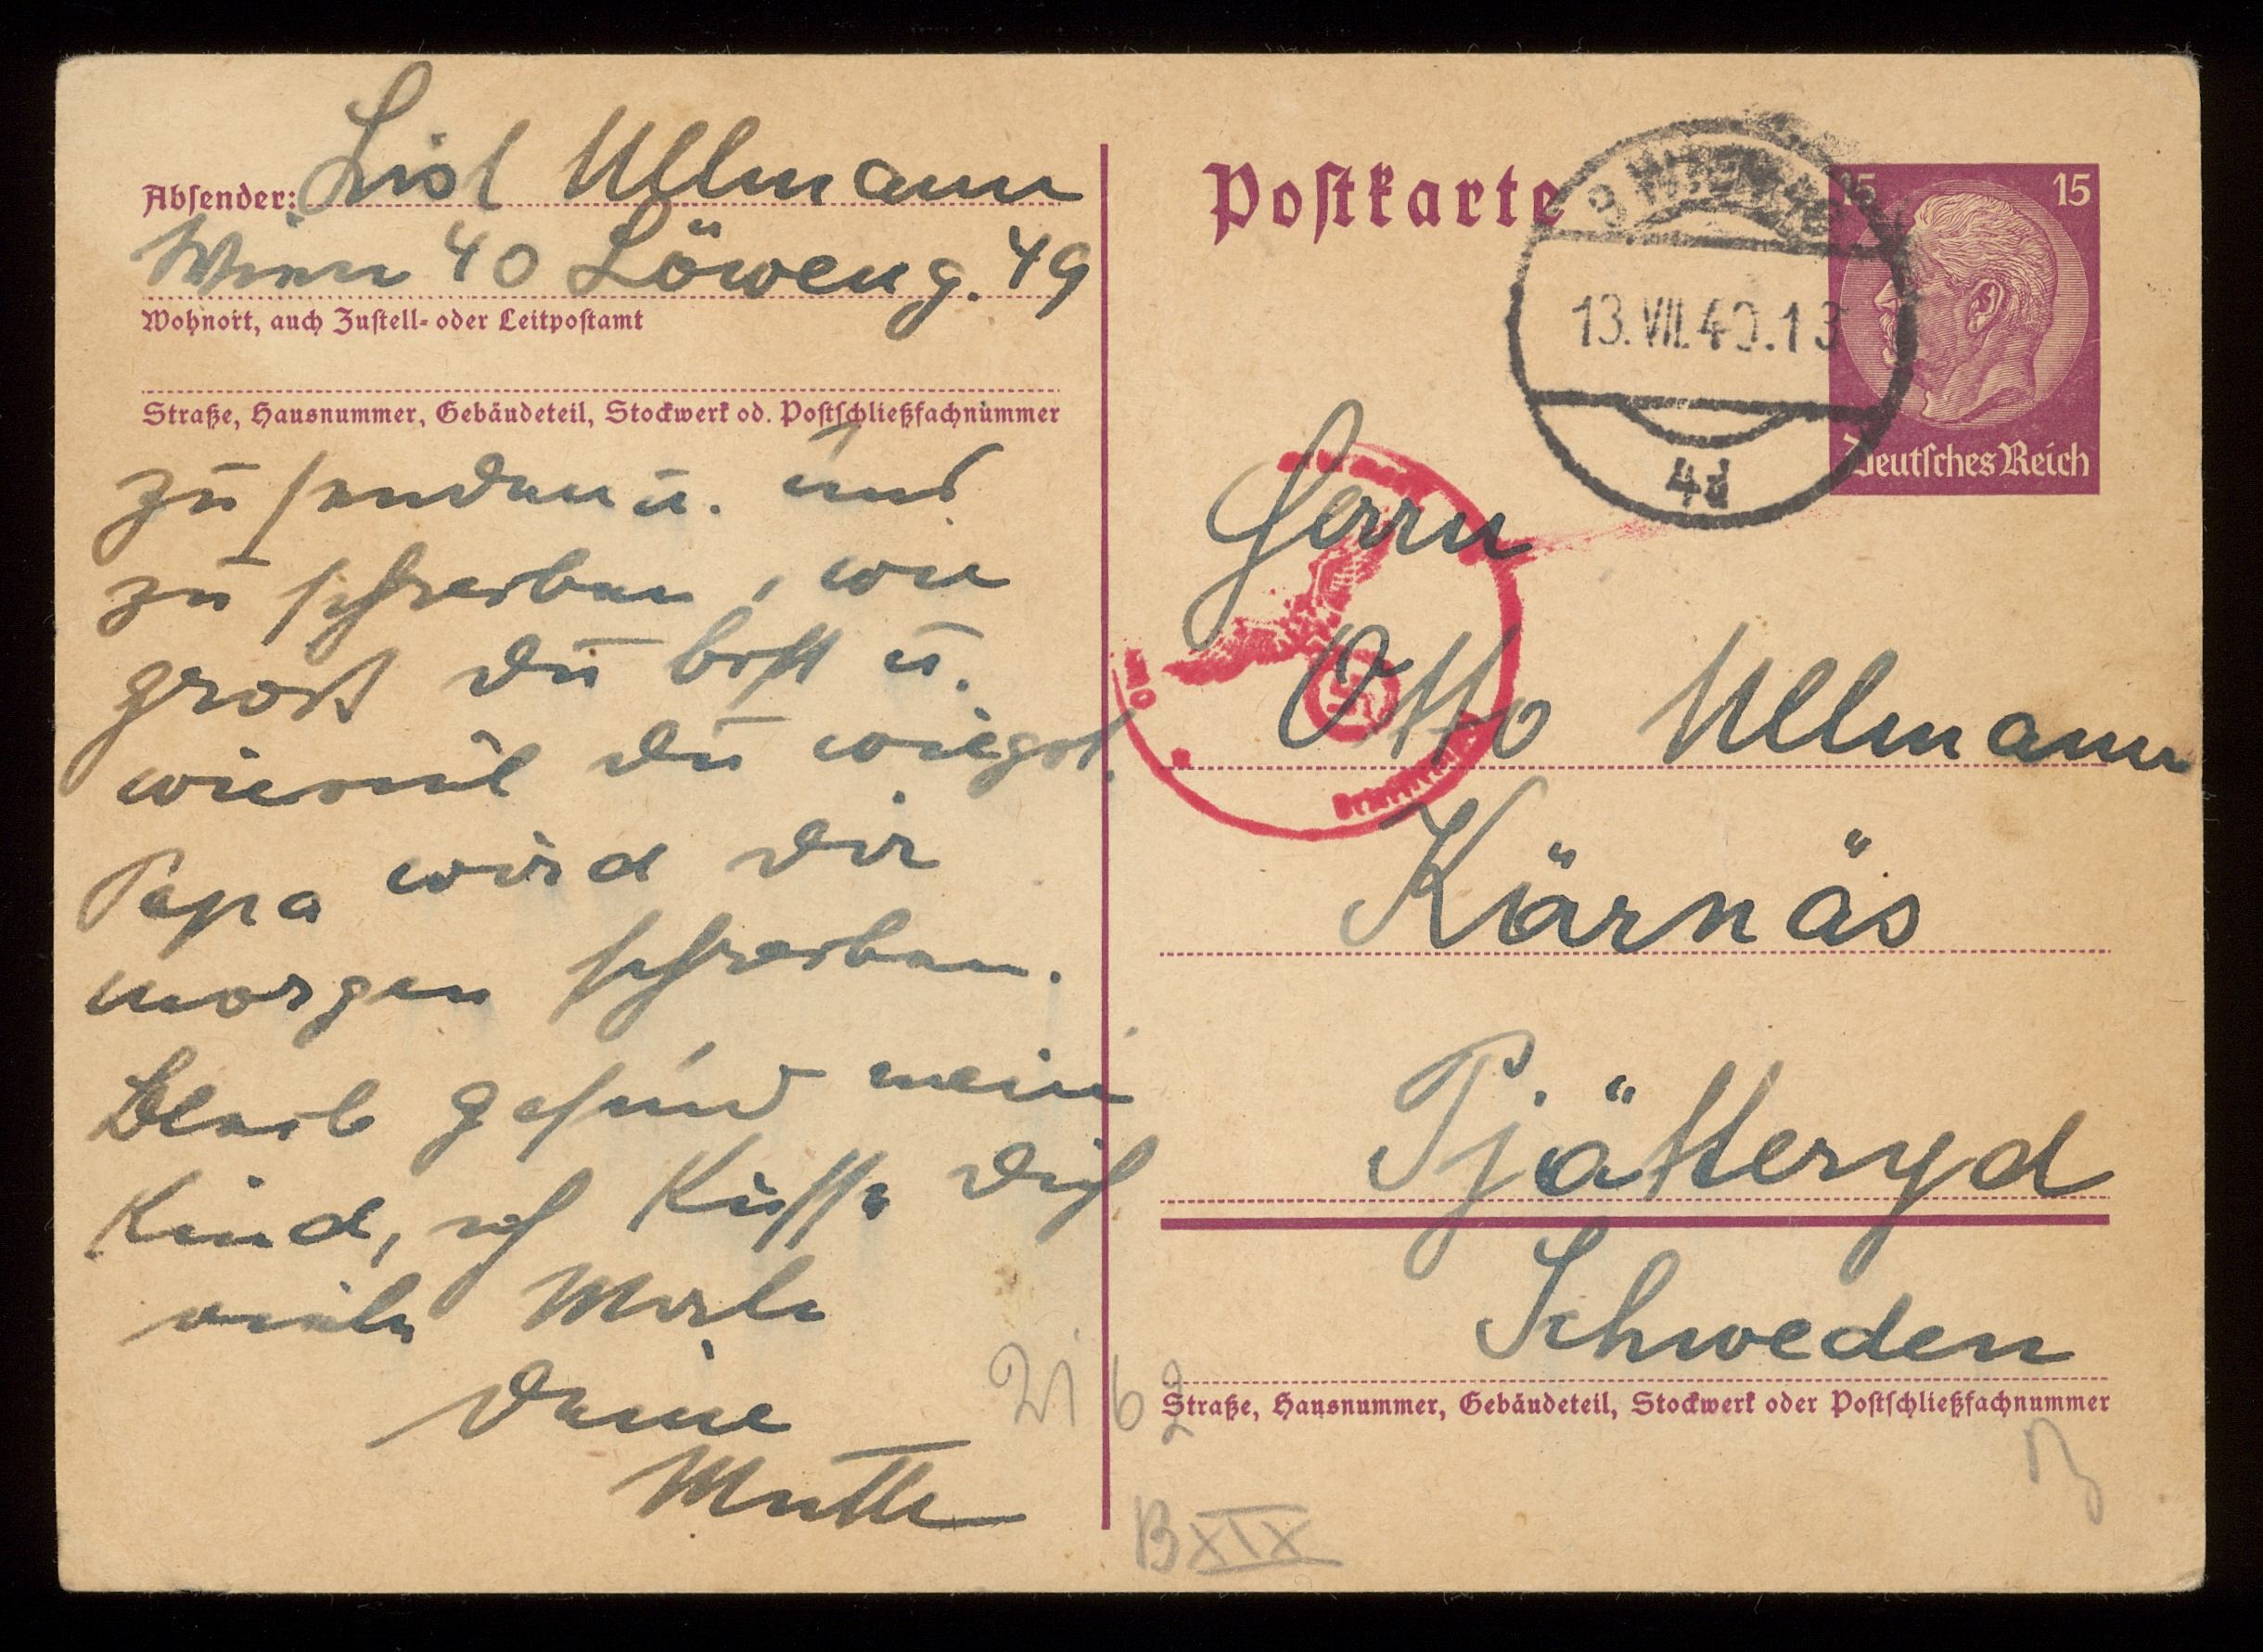 Absender: Lisl Ullmann
Wien 40 Löweng. 49
Wohnort, auch Zustell- oder Leitpostamt
Straße, Hausnummer, Gebäudeteil, Stockwerk od. Postschließfachnummer
zu senden u. uns
zu schreiben, wie
groß Du bist u.
wieviel Du wiegst.
Papa wird Dir
morgen schreiben.
Bleib gesund mein
Kind, ich küsse Dich
viele Male
Deine
Mutti
Postkarte
13.VII.40.13
4d
15 15
Deutsches Reich
Herrn
Otto Ullmann
Kärnäs
Pjätteryd
Schweden
Straße, Hausnummer, Gebäudeteil, Stockwerk oder Postschließfachnummer
B XIX